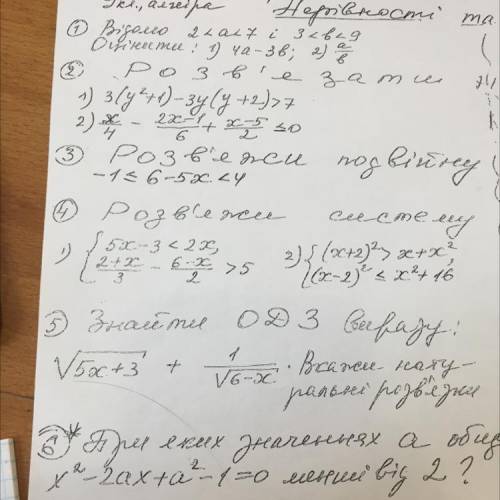 кл., алгебра Нерівності та
① Відомо 2<a<7 і 3<b<9
Оцінити: 1) 4a-3b; 2) a/b
② Розв'язати
1) 3(y²+1)-3y(y+2)>7
2) x/4 - (2x-1)/6 + (x-5)/2 ≤0
③ Розв'яжи подвійну
-1≤6-5x<4
④ Розв'яжи систему
1) { 5x-3<2x, 2) { (x+2)²>x+x²,
(2+x)/3 - (6-x)/2 >5 (x-2)² ≤ x²+16
⑤ Знайти ОДЗ виразу:
√(5x+3) + 1/√(6-x). Вкажи нату-
ральні розв'язки
⑥* При яких значеннях a обид
x²-2ax+a²-1=0 менші від 2?